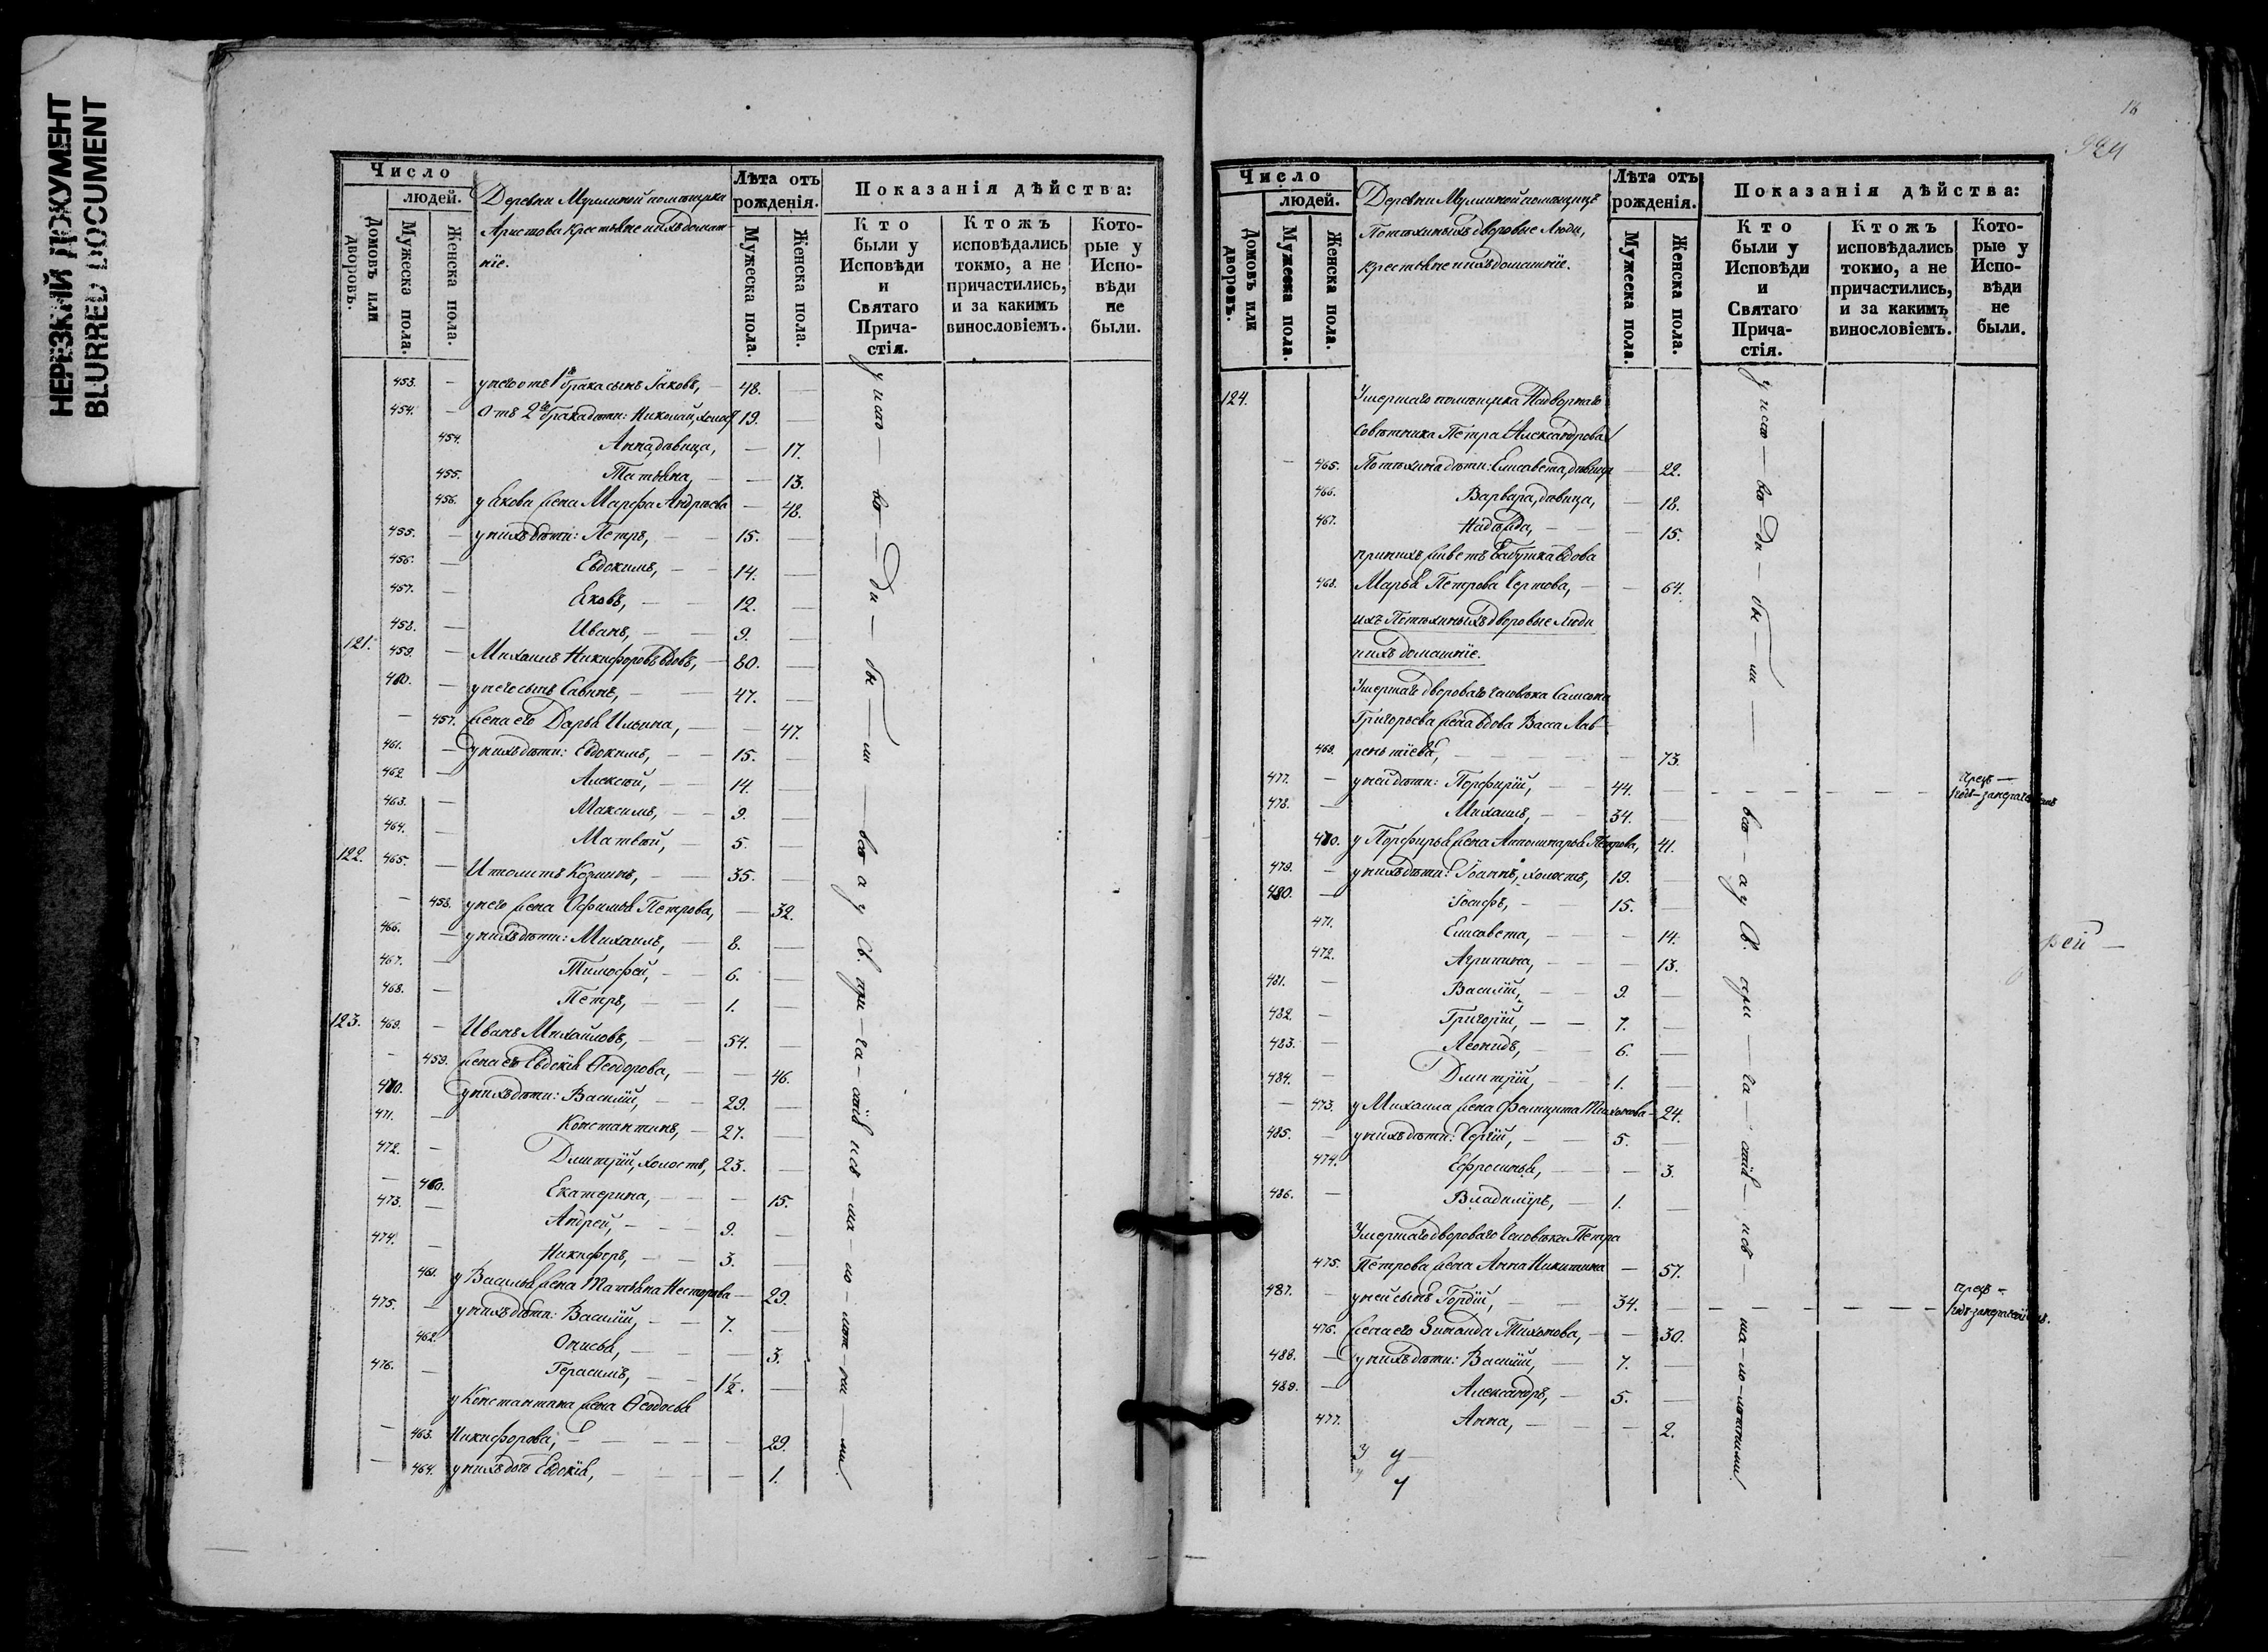 НЕРЕЗКИЙ ДОКУМЕНТ
BLURRED DOCUMENT
Число
людей.
Домовъ или дворовъ.
Мужеска пола.
Женска пола.
Деревни помѣщика
Аристова крестьяне и ихъ домаш-
нїе.
Лѣта отъ рожденія.
Мужеска пола.
Женска пола.
Показанія дѣйства:
Кто были у Исповѣди и Святаго Прича-стія.
Ктожъ исповѣдались токмо, а не причастились, и за какимъ винословіемъ.
Кото-рые у Испо-вѣди не были.
453. — у него отъ 1го брака сынъ Іаковъ, — 48. —
454. — отъ 2го брака дѣти: Николай, холост 19. —
454. Анна, дѣвица, — 17.
455. Татьяна, — 13.
456. у Якова жена Марфа Андреева — 48.
455. — у нихъ дѣти: Петръ, — 15. —
456. — Евдокимъ, — 14. —
457. — Яковъ, — 12. —
458. — Иванъ, — 9. —
121. 459. — Михаилъ Никифоровъ вдовъ, — 80. —
460. — у него сынъ Савинъ, — 47. —
— 457. жена его Дарья Ильина, — 47.
461. — у нихъ дѣти: Евдокимъ, — 15. —
462. — Алексѣй, — 14. —
463. — Максимъ, — 9. —
464. — Матвѣй, — 5. —
122. 465. — Иполитъ Козминъ, — 35. —
— 458. у него жена Офимья Петрова, — 32.
466. — у нихъ дѣти: Михаилъ, — 8. —
467. — Тимофей, — 6. —
468. — Петръ, — 1. —
123. 469. — Иванъ Михайловъ, — 54. —
— 459. жена ево Евдокія Ѳеодорова, — 46.
470. у нихъ дѣти: Василій, — 29. —
471. — Константинъ, — 27. —
472. — Дмитрій, холостъ, 23. —
— 460. Екатерина, — 15.
473. — Андрей, — 9. —
474. — Никифоръ, — 3. —
461. у Василья жена Татьяна Нестерова — 29.
475. — у нихъ дѣти: Василій, — 7. —
462. Онисья, — 3.
476. — Герасимъ, — 1½. —
у Константина жена Ѳеодосья
— 463. Никифорова, — 29.
— 464. у нихъ дочь Евдокія, — 1.
у испо — вѣ — ди — бы — ли — всѣ — а у Св. при — ча — стія
16
924
Число
людей.
Домовъ или дворовъ.
Мужеска пола.
Женска пола.
Деревни помѣщицъ
Потѣхиныхъ дворовые люди,
крестьяне и ихъ домашнїе.
Лѣта отъ рожденія.
Мужеска пола.
Женска пола.
Показанія дѣйства:
Кто были у Исповѣди и Святаго Прича-стія.
Ктожъ исповѣдались токмо, а не причастились, и за какимъ винословіемъ.
Кото-рые у Испо-вѣди не были.
124. Умершаго помѣщика Надворнаго
совѣтника Петра Александрова
— 465. Потѣхина дѣти: Елисавета, дѣвица — 22.
466. Варвара, дѣвица, — 18.
467. Надежда, — 15.
при нихъ живетъ бабушка вдова
468. Марья Петрова Чертова, — 64.
ихъ Потѣхиныхъ дворовые люди
и ихъ домашнїе.
Умершаго двороваго человѣка Самсона
Григорьева жена вдова Васса Лав-
469. рентїева, — 73.
477. — у ней дѣти: Порфирїй, — 44. —
478. — Михаилъ, — 34. —
470. у Порфирья жена Аполинарья Петрова, 41.
479. — у нихъ дѣти: Іоаннъ, холостъ, 19. —
480. — Іосифъ, — 15. —
471. Елисавета, — 14.
472. Агрипина, — 13.
481. — Василїй, — 9. —
482. — Григорїй, — 7. —
483. — Леонидъ, — 6. —
484. — Дмитрїй, — 1. —
— 473. у Михаила жена Фелицата Тихонова — 24.
485. — у нихъ дѣти: Сергїй, — 5. —
474. Ефросинья, — 3.
486. — Владимїръ, — 1. —
Умершаго дворового человѣка Петра
475. Петрова жена Анна Никитина — 57.
487. — у ней сынъ Гордїй, — 34. —
476. жена его Зинаида Тихонова, — 30.
488. — у нихъ дѣти: Василїй, — 7. —
489. — Александръ, — 5. —
477. Анна, — 2.
у испо — вѣ — ди — бы — ли — всѣ — а у Св. при — ча — стія